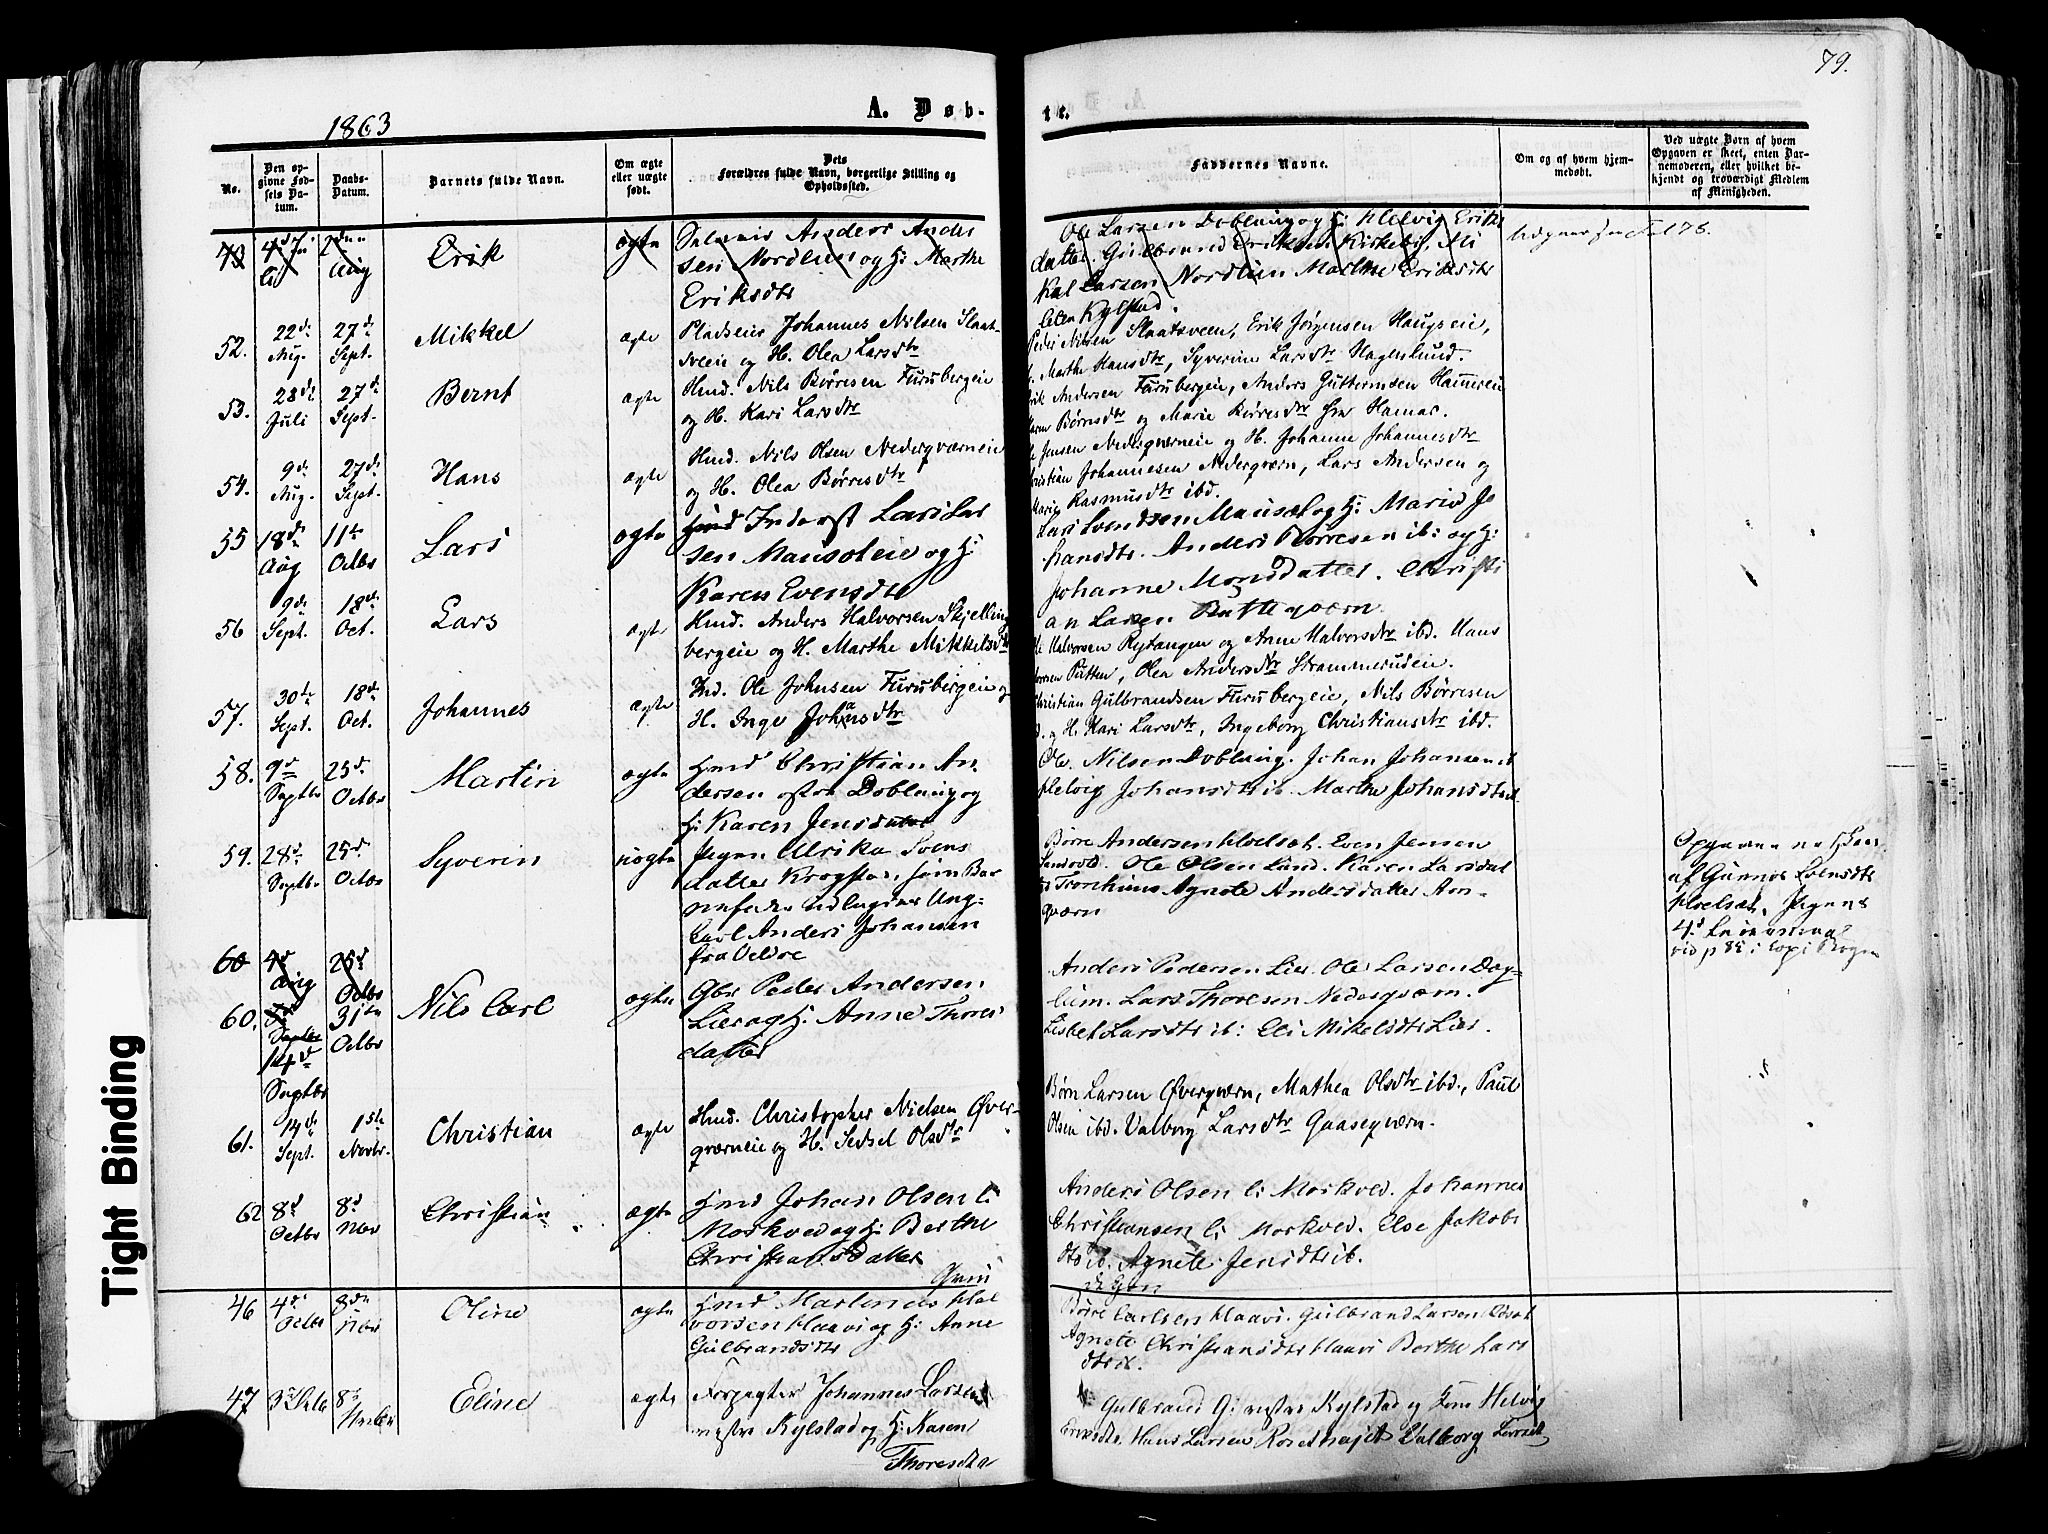 79.
1863
A. Døb-
te.
No.
Den op-
givne Fød-
sels Da-
tum.
Daabs-
Datum.
Barnets fulde Navn.
Om ægte
eller uægte
født.
Dets
Forældres fulde Navn, borgerlige Stilling og
Opholdssted.
Faddernes Navne.
Om og af hvem hjem-
medøbt.
Ved uægte Børn af hvem
Opgaven er skeet, enten Bar-
nemoderen, eller hvilket be-
kjendt og troværdigt Medlem
af Menigheden.
Erik
ægte
Anders Ander
sen Nordlien og H: Marthe
Eriksdtr
Ole Larsen Doblaug og H: Helvig Eriks
datter. Gulbrand Eriksen Kirkeby, Mi
kal Larsen Nordlien Marthe Eriksdtr
Kylstad.
52.
22de
Aug.
27de
Sept.
Mikkel
ægte
Pladseier Johannes Nilsen Slaat-
sveie og H. Olea Larsdtr
Peder Nilsen Slaatsveen, Erik Jørgensen Haugseie,
Marthe Hansdtr, Syverine Larsdtr Hagerlund.
53.
28de
Juli
27de
Sept.
Bernt
ægte
Hmd. Nils Børresen Furubergeie
og H. Kari Larsdtr
Erik Andersen Furubergeie, Anders Guttormsen
Børnsdtr og Marie Børresdtr fra Hamar.
54.
9de
Aug.
27de
Sept.
Hans
ægte
Hmd. Nils Olsen Nedreqværneie
og H. Olea Børresdtr
Jensen Nedreqværneie og H. Johanne Johannesdtr
Christian Johannesen Nedreqværn, Lars Andersen og
Marie Rasmusdtr ibd.
55
18de
Aug
11te
Octbr
Lars
ægte
Hmd Inderst Lars Lar
sen Mansoleie og H:
Karen Evensdtr
Lars Svendsen Mansol og H: Marie Jo
hansdtr. Anders Børresen ib: og H:
Johanne Monsdatter. Christi
an Larsen Rotteqværn
56
9de
Sept.
18de
Oct.
Lars
ægte
Hmd. Anders Halvorsen Skjelling
bergeie og H. Marthe Mikkelsdtr
Halvorsen Rytangen og Anne Halvorsdtr ibd. Hans
Putten, Olea Andersdtr Strammerudeie.
57.
30te
Sept.
18de
Oct.
Johannes
ægte
Ind. Ole Johnsen Furubergeie og
H. Inge Johansdtr
Christian Gulbrandsen Furubergeie, Nils Børresen
og H. Kari Larsdtr, Ingeborg Christiansdtr ibd.
58.
9de
Septbr
25de
Octbr
Martin
ægte
Hmd Christian An
dersen østre Doblaug og
H: Karen Jensdatter
Ole Nilsen Doblaug. Johan Johansen ib
Helvig Johansdtr ib. Marthe Johansdtr ib.
59.
28de
Septbr
25de
Octbr
Syverin
uægte
Pigen Ulrika Svens
datter Krogstad, som Bar
nefader udlagdes Ung-
karl Anders Johansen
fra Vedre
Børre Andersen Hoelsæt. Even Jensen
Ole Olsen Lund. Karen Larsdat
ter Tronhuus Agnete Andersdatter
qværn
Opgaven er skeet
af Gunnor Svensdtr
Hoelsæt, Pigens
4de Leiermaal
vid p 85 i Copi Bogen
60
4de
Aug
25de
Octbr
60.
Septbr
14de
Septbr
31te
Octbr
Nils Carl
ægte
Gbr Peder Andersen
Lier og H. Anne Thores
datter
Anders Pedersen Lier. Ole Larsen Dog-
lum. Lars Thoresen Nedreqværn.
Lisbet Larsdtr ib: Eli Mikelsdtr Lier.
61.
14de
Sept.
1ste
Novbr.
Christian
ægte
Hmd. Christopher Nielsen Øver-
qværneie og H. Sidsel Olsdtr
Børn Larsen Øverqværn, Mathea Olsdtr ibd., Paul
Olsen ibd. Valborg Larsdtr Gaaseqværn.
62
8de
Octbr
8de
Nov
Christian
ægte
Hmd Johan Olsen li
Morkved og H: Berthe
Christiansdatter
Anders Olsen li Morkved. Johannes
Christiansen li Morkved. Else Jakobs
dtr ib. Agnete Jensdtr ib.
46
4de
Octbr
8de
Nbr
Oline
ægte
Hmd Martinus Hal
vorsen Haavi og H: Anne
Gulbrandsdtr
Børre Carlsen Haavi. Gulbrand Larsen
Agnete Christiansdtr Haavi Berthe Lars
dtr ib.
47
8de
Eline
ægte
Forpagter Johannes Larsen
vestre Kylstad og H: Karen
Thoresdtr
Gulbrand G: vestre Kylstad og Kone Helvig
Hans Larsen Valborg
Tight Binding